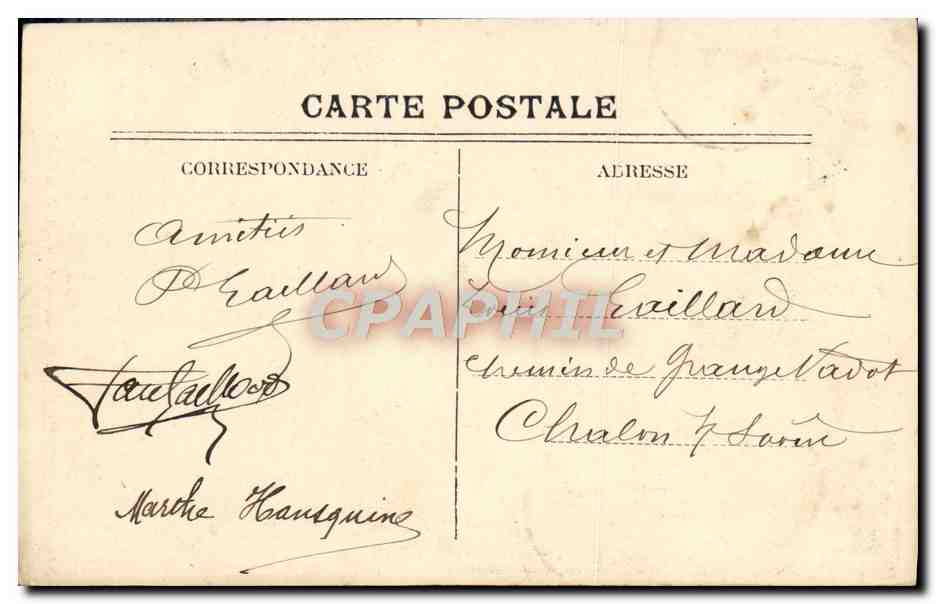 CARTE POSTALE
CORRESPONDANCE
Amitiés
P Gaillard
Paul Gaillard
Marthe Hansquine
ADRESSE
Monsieur et Madame
Louis Gaillard
chemin de Grange Vadot
Chalon s/ Saône
CPAPHIL